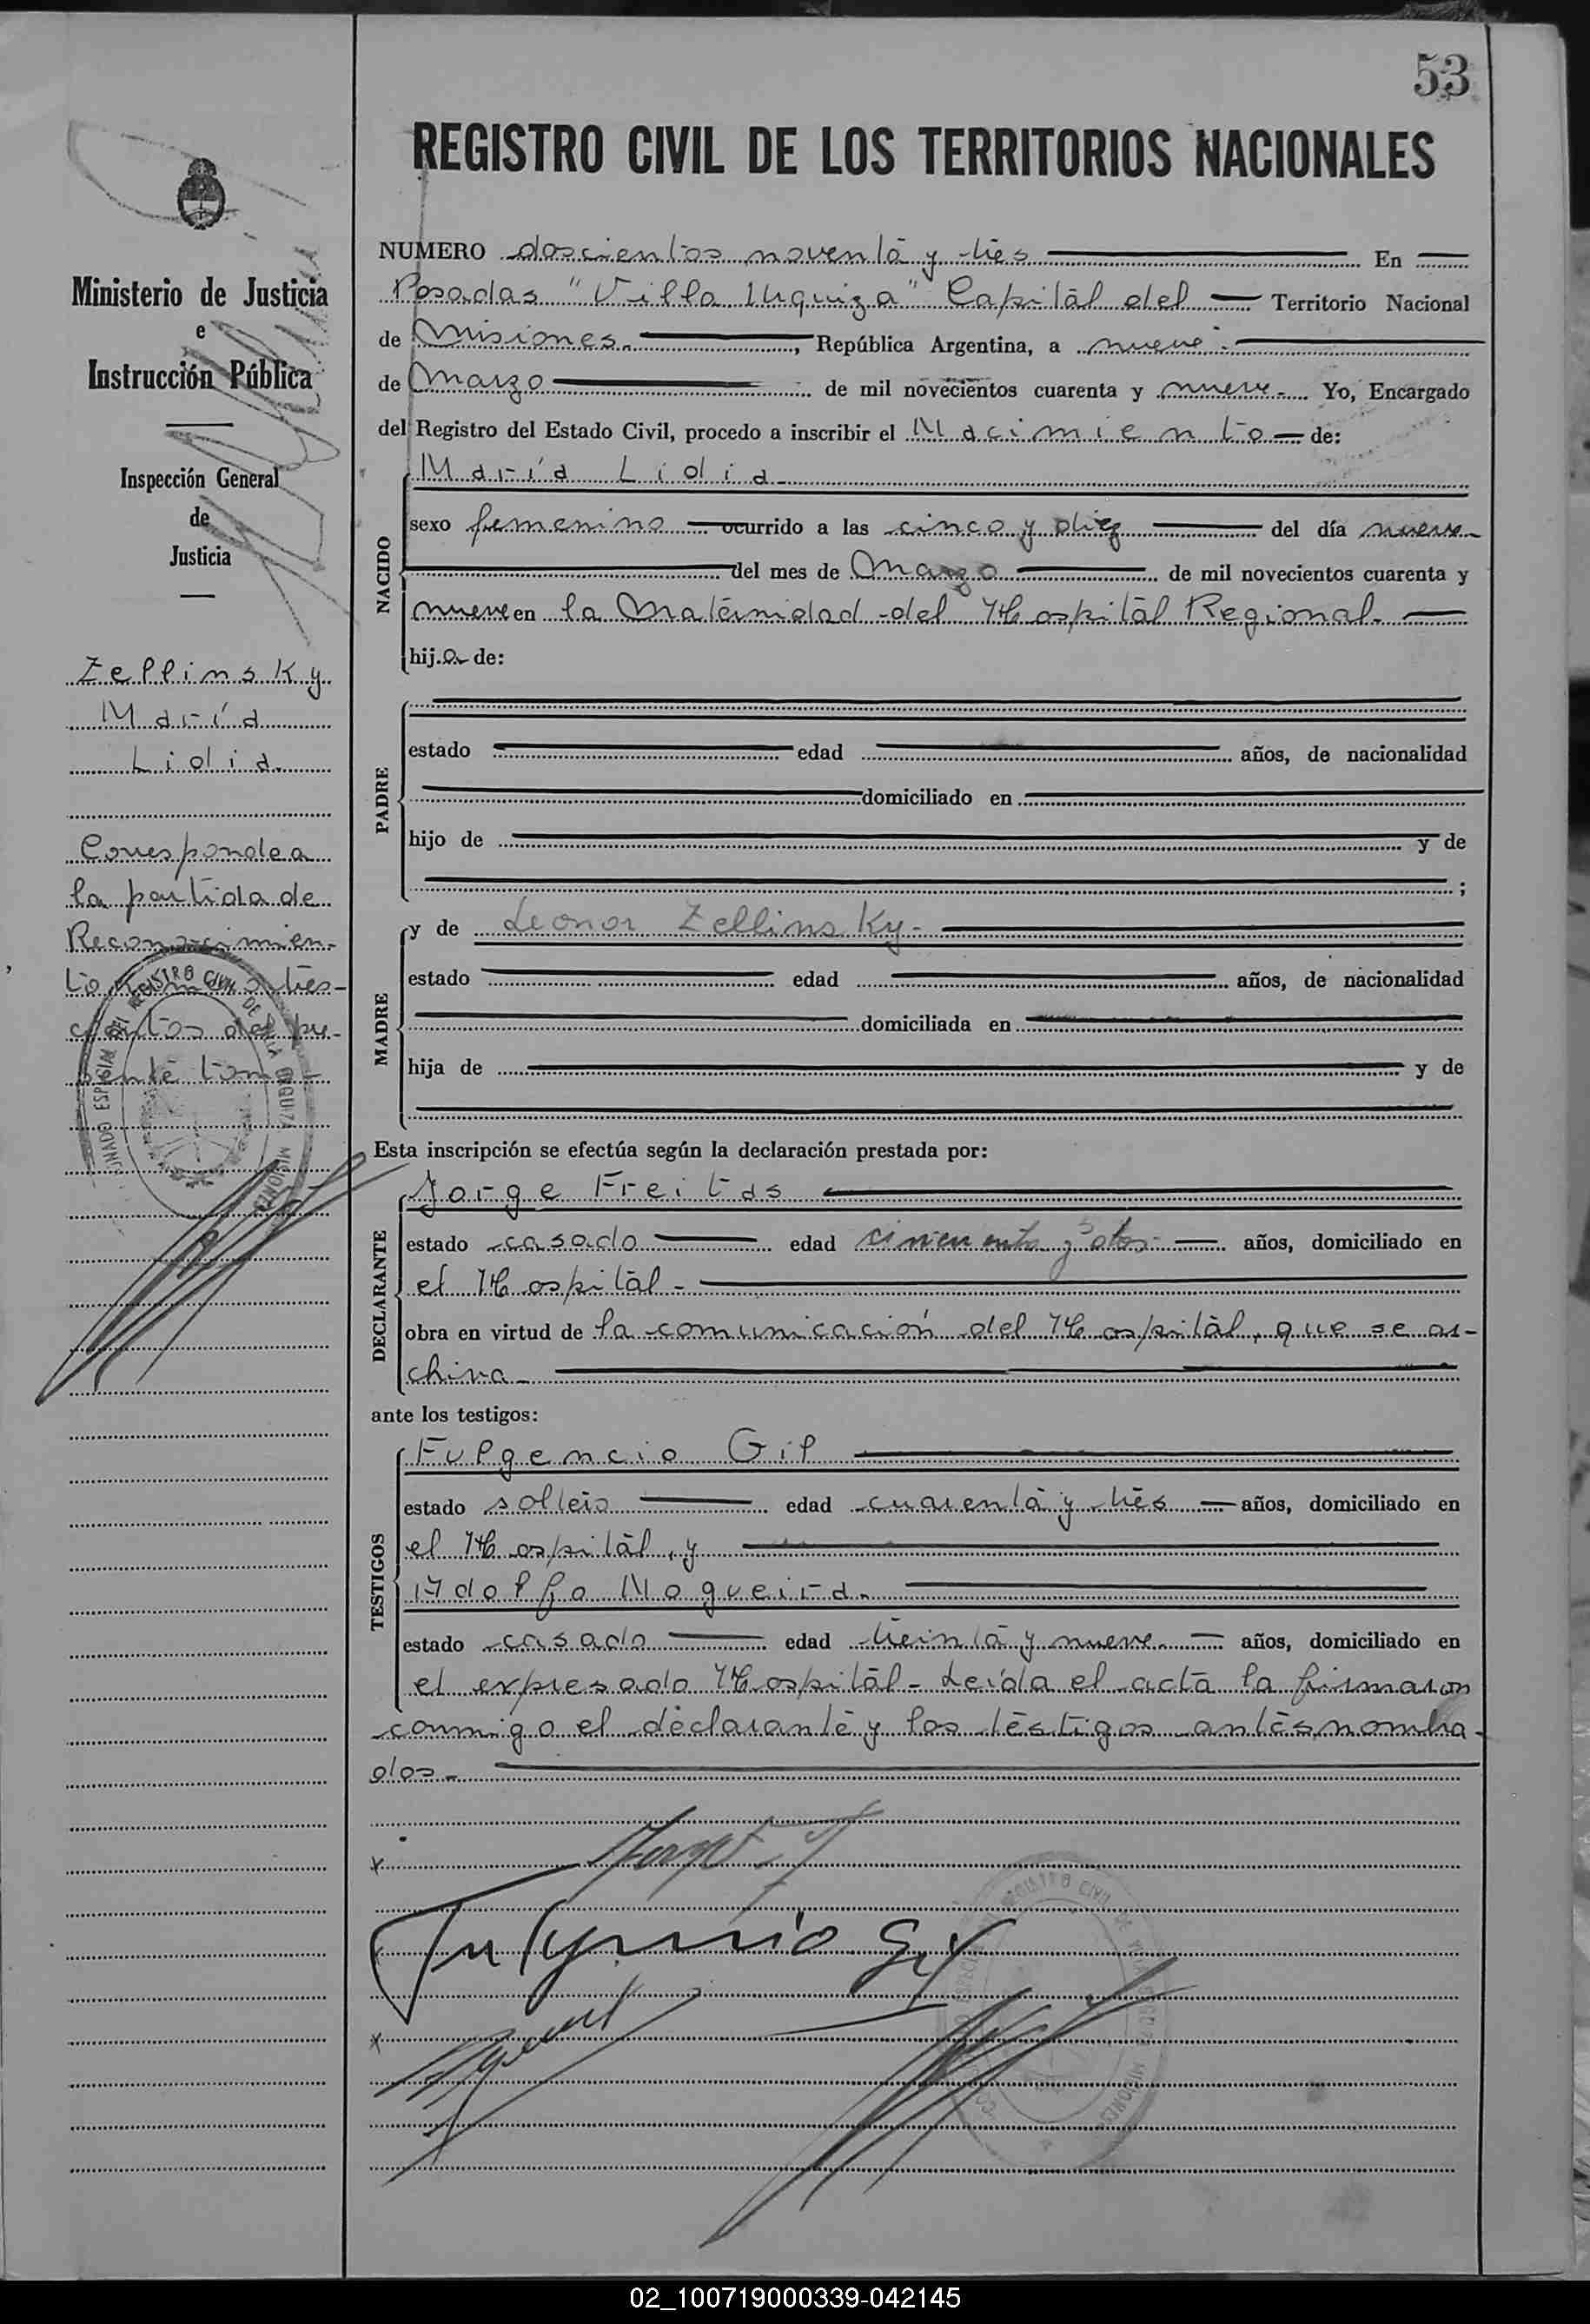 53
REGISTRO CIVIL DE LOS TERRITORIOS NACIONALES
Ministerio de Justicia
e
Instrucción Pública
Inspección General
de
Justicia
Zellinsky
María
Lidia.
Corresponde a
la partida de
Reconocimien-
to número tres-
cientos del pre-
sente tomo
NUMERO doscientos noventa y tres En
Posadas "Villa Urquiza" Capital del Territorio Nacional
de Misiones. , República Argentina, a nueve.
de Marzo de mil novecientos cuarenta y nueve. Yo, Encargado
del Registro del Estado Civil, procedo a inscribir el Nacimiento de:
NACIDO
María Lidia
sexo femenino ocurrido a las cinco y diez del día nueve
del mes de Marzo de mil novecientos cuarenta y
nueve en la Maternidad del Hospital Regional.
hij.a de:
PADRE
estado edad años, de nacionalidad
domiciliado en
hijo de y de
;
MADRE
y de Leonor Zellinsky.
estado edad años, de nacionalidad
domiciliada en
hija de y de
Esta inscripción se efectúa según la declaración prestada por:
DECLARANTE
Jorge Freitas
estado casado edad cincuenta y dos años, domiciliado en
el Hospital -
obra en virtud de la comunicación del Hospital, que se ar-
chiva -
ante los testigos:
TESTIGOS
Fulgencio Gil
estado soltero edad cuarenta y tres años, domiciliado en
el Hospital, y
Adolfo Nogueira.
estado casado edad treinta y nueve. años, domiciliado en
el expresado Hospital - Leída el acta la firmaron
conmigo el declarante y los testigos antes nombra-
dos -
Jorge F
Fulgencio Gil
REGISTRO CIVIL DE
02_100719000339-042145